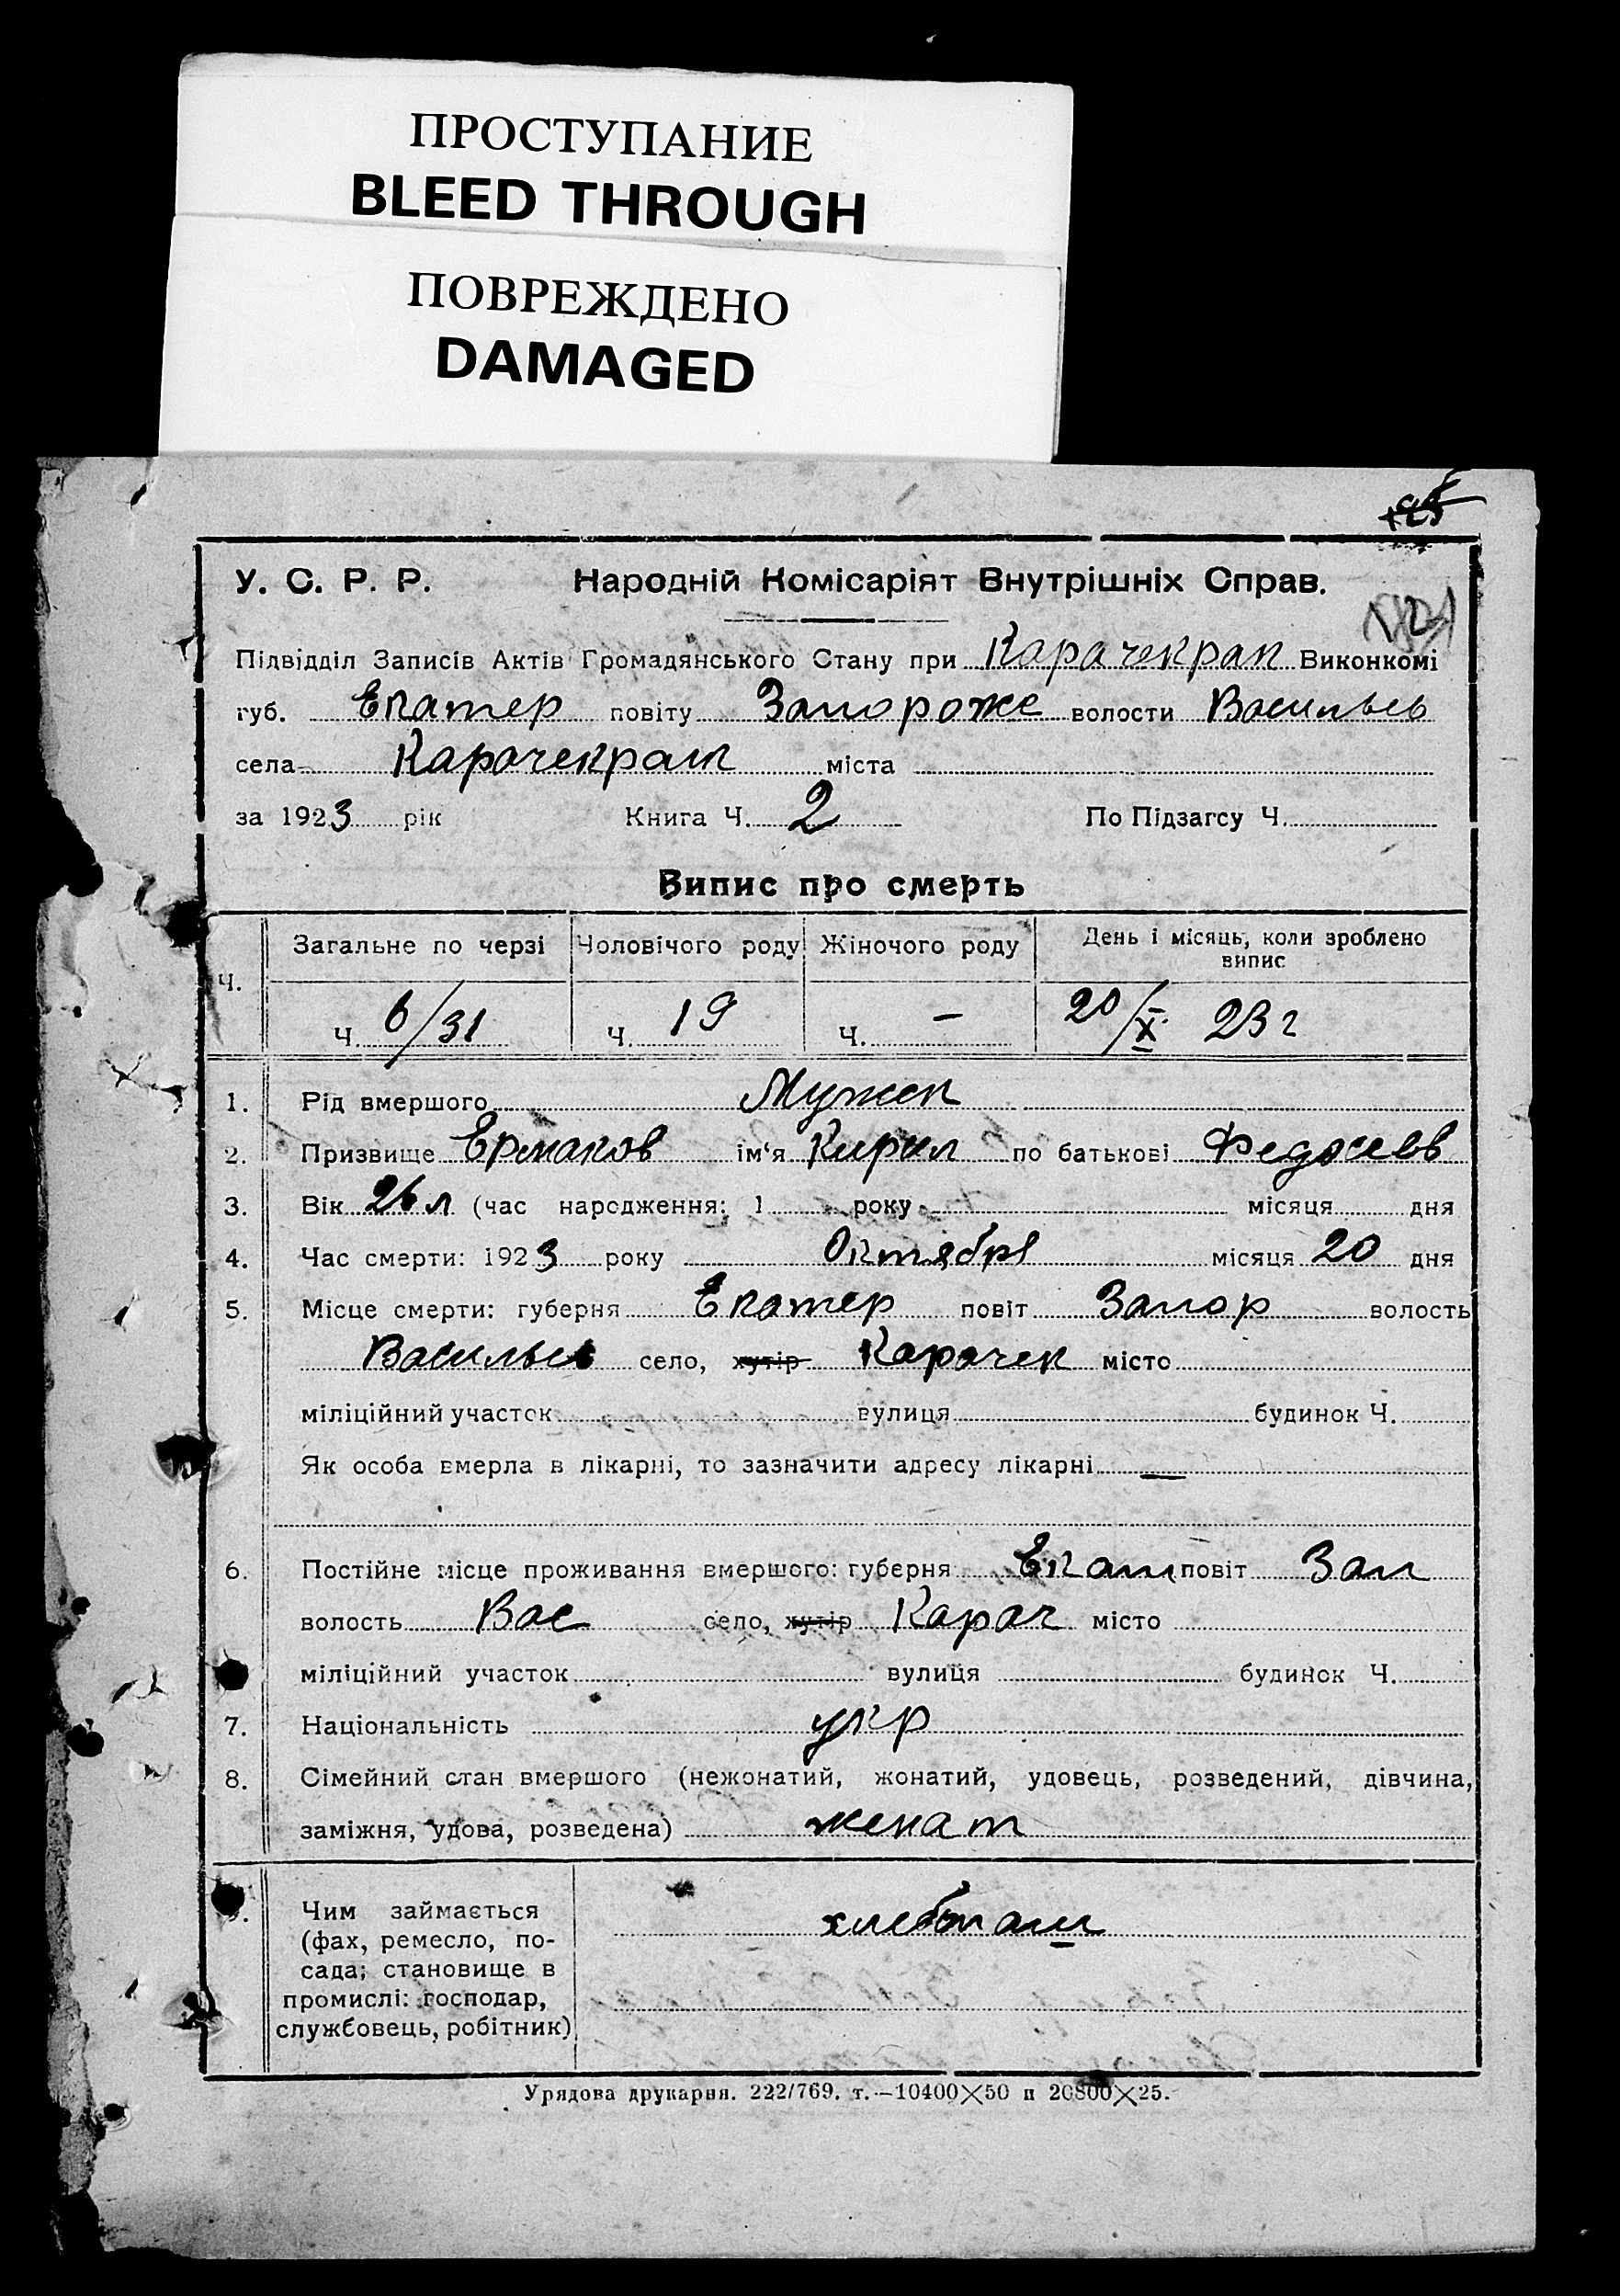 ПРОСТУПАНИЕ
BLEED THROUGH
ПОВРЕЖДЕНО
DAMAGED
У. С. Р. Р. Народній Комісаріят Внутрішніх Справ.
Підвідділ Записів Актів Громадянського Стану при Карачекрак Виконкомі
губ. Екатер повіту Запороже волости Васильев
села Карачекрак міста
за 1923 рік Книга Ч. 2 По Підзагсу Ч.
Випис про смерть
Ч. Загальне по черзі Чоловічого роду Жіночого роду День і місяць, коли зроблено
випис
Ч. 6/31 Ч. 19 Ч. – 20/X 23 г
1. Рід вмершого Мужск
2. Призвище Ермаков ім‘я Кирил по батькові Федосеев
3. Вік 26 л (час народження: 1 року місяця дня
4. Час смерти: 1923 року Октября місяця 20 дня
5. Місце смерти: губерня Екатер повіт Запор волость
Васильев село, хутір Карачек місто
міліційний участок вулиця будинок Ч.
Як особа вмерла в лікарні, то зазначити адресу лікарні —
6. Постійне місце проживання вмершого: губерня Екат повіт Зап
волость Вас село, хутір Карач місто
міліційний участок вулиця будинок Ч.
7. Національність укр
8. Сімейний стан вмершого (нежонатий, жонатий, удовець, розведений, дівчина,
заміжня, удова, розведена) женат
9. Чим займається хлебопаш
(фах, ремесло, по-
сада; становище в
промислі: господар,
службовець, робітник)
Урядова друкарня. 222/769. т.—10400×50 п 20800×25.